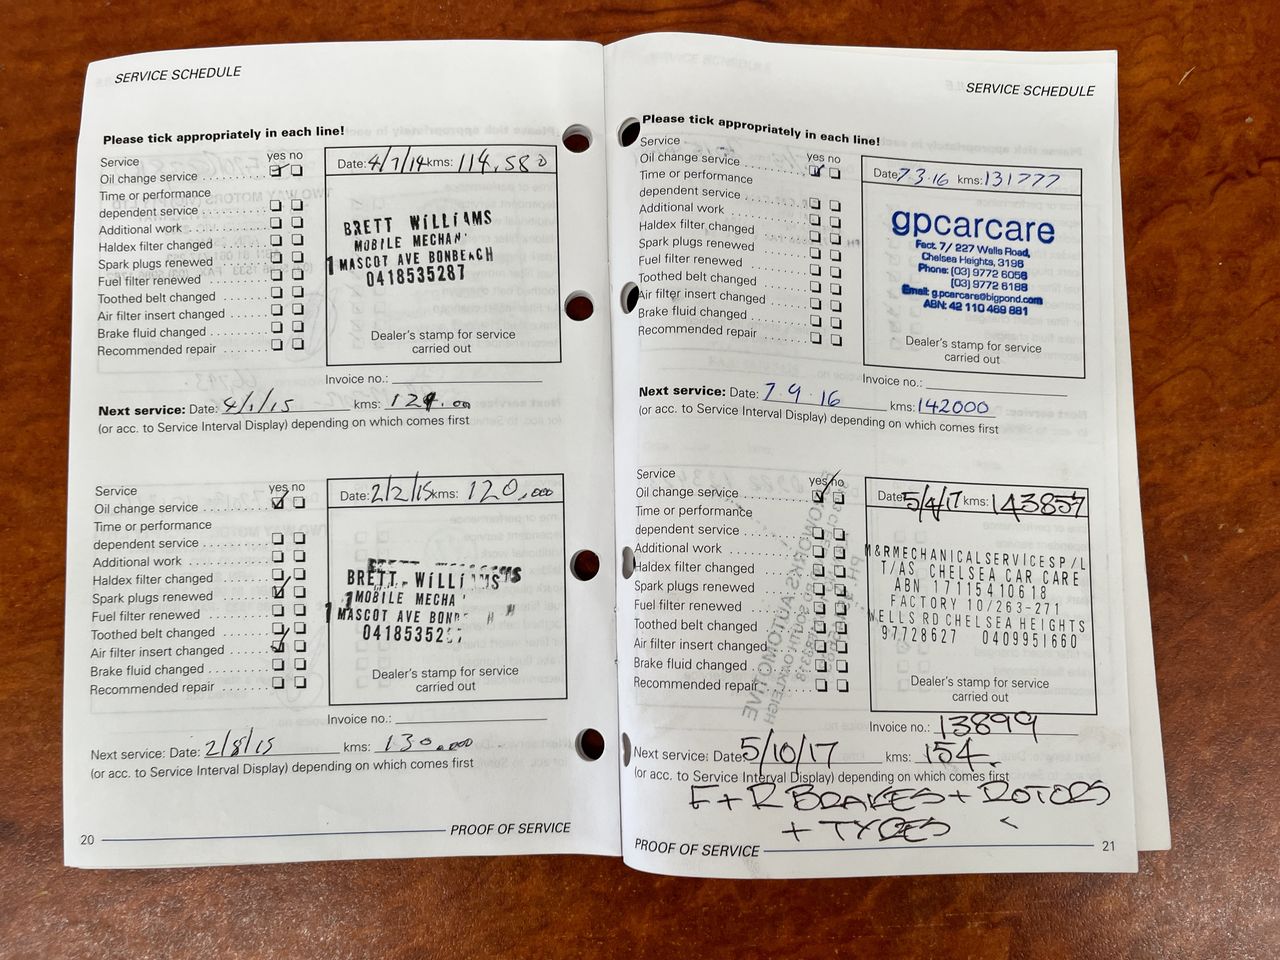 SERVICE SCHEDULE
Please tick appropriately in each line!
Service yes no
Oil change service
Time or performance
dependent service
Additional work
Haldex filter changed
Spark plugs renewed
Fuel filter renewed
Toothed belt changed
Air filter insert changed
Brake fluid changed
Recommended repair
Date: 4/7/14 kms: 114,580
BRETT WILLIAMS
MOBILE MECHAN
1 MASCOT AVE BONBEACH
0418535287
Dealer's stamp for service
carried out
Invoice no.:
Next service: Date: 4/1/15 kms: 124.00
(or acc. to Service Interval Display) depending on which comes first
Service yes no
Oil change service
Time or performance
dependent service
Additional work
Haldex filter changed
Spark plugs renewed
Fuel filter renewed
Toothed belt changed
Air filter insert changed
Brake fluid changed
Recommended repair
Date: 2/2/15 kms: 120,000
BRETT WILLIAMS
MOBILE MECHA
1 MASCOT AVE BONB
04185352
Dealer's stamp for service
carried out
Invoice no.:
Next service: Date: 2/8/15 kms: 130,000
(or acc. to Service Interval Display) depending on which comes first
20 PROOF OF SERVICE
SERVICE SCHEDULE
Please tick appropriately in each line!
Service yes no
Oil change service
Time or performance
dependent service
Additional work
Haldex filter changed
Spark plugs renewed
Fuel filter renewed
Toothed belt changed
Air filter insert changed
Brake fluid changed
Recommended repair
Date: 7.3.16 kms: 131777
gpcarcare
Fact. 7/ 227 Wells Road,
Chelsea Heights, 3196
Phone: (03) 9772 6056
(03) 9772 6188
Email: g.pcarcare@bigpond.com
ABN: 42 110 469 881
Dealer's stamp for service
carried out
Invoice no.:
Next service: Date: 7.9.16 kms: 142000
(or acc. to Service Interval Display) depending on which comes first
Service yes no
Oil change service
Time or performance
dependent service
Additional work
Haldex filter changed
Spark plugs renewed
Fuel filter renewed
Toothed belt changed
Air filter insert changed
Brake fluid changed
Recommended repair
Date: 5/4/17 kms: 143857
M&RMECHANICALSERVICESP/L
T/AS CHELSEA CAR CARE
ABN 17115410618
FACTORY 10/263-271
WELLS RD CHELSEA HEIGHTS
97728627 0409951660
Dealer's stamp for service
carried out
Invoice no.: 13899
Next service: Date: 5/10/17 kms: 154.
(or acc. to Service Interval Display) depending on which comes first
F + R BRAKES + ROTORS
+ TYRES
PROOF OF SERVICE 21